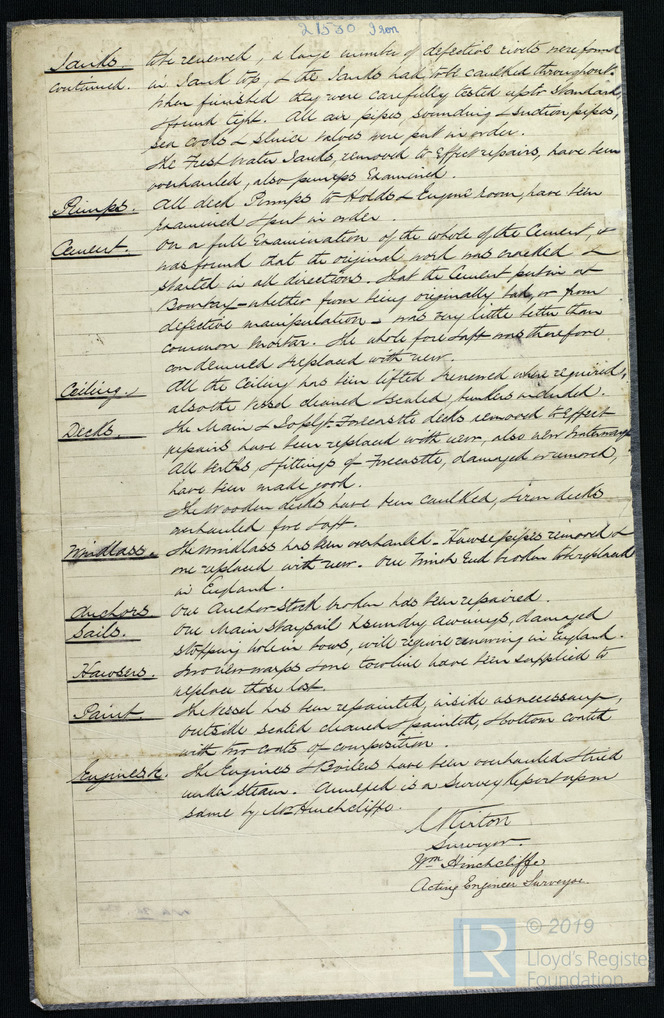 21530 Iron
Tanks. to be renewed, a large number of defective rivets were found
continued. in Tank top, & the Tanks had to be caulked throughout.
When finished they were carefully tested up to Standard,
& found tight. All air pipes, sounding & suction pipes,
sea cocks & sluice valves were put in order.
The Fresh Water Tanks, removed to Effect repairs, have been
overhauled, also pumps Examined.
Pumps. All deck Pumps to Holds & Engine Room, have been
Examined & put in order.
Cement. On a full Examination of the whole of the Cement, it
was found that the original work was cracked &
started in all directions. That the Cement put in at
Bombay - whether from being originally bad, or from
defective manipulation - was very little better than
common Mortar. The whole fore & aft was therefore
condemned & replaced with new.
Ceiling. All the Ceiling has been lifted & renewed where required,
also the Vessel cleaned & scaled, bunkers included.
Decks. The Main & Topgt. Forecastle decks removed to Effect
repairs have been replaced with new, also new Waterways
All berths & fittings of Forecastle, damaged or removed,
have been made good.
The Wooden decks have been caulked, & iron decks
overhauled fore & aft.
Windlass. The Windlass has been overhauled. Hawse pipes removed &
one replaced with new. One Winch End broken to be replaced
in England.
Anchors One Anchor Stock broken has been repaired.
Sails. One Main Staysail & sundry Awnings, damaged
stopping hole in bows, will require renewing in England.
Hawsers. Two new warps & one towline have been supplied to
replace those lost.
Paint. The Vessel has been repainted, inside as necessary,
outside scaled cleaned & painted, & bottom coated
with two coats of composition.
Engines &c. The Engines & Boilers have been overhauled & tried
under steam. Annexed is a Survey Report upon
same by Mr Hinchcliffe.
Kirton
Surveyor.
Wm Hinchcliffe
Acting Engineer Surveyor.
LR © 2019
Lloyd's Registe
Foundation